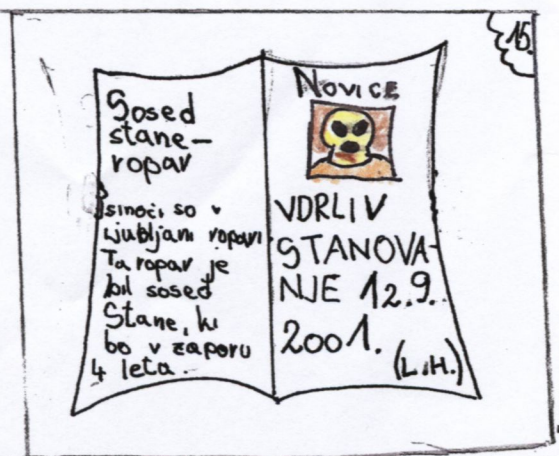 15.
Sosed
stane-
ropar
sinoči so v
Ljubljani ropari
Ta ropar je
bil sosed
Stane, ki
bo v zaporu
4 leta.
NOVICE
VDRLI V
STANOVA-
NJE 12.9.
2001.
(L.H.)